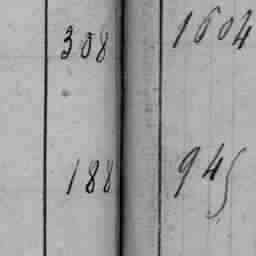 308 1604
188 945